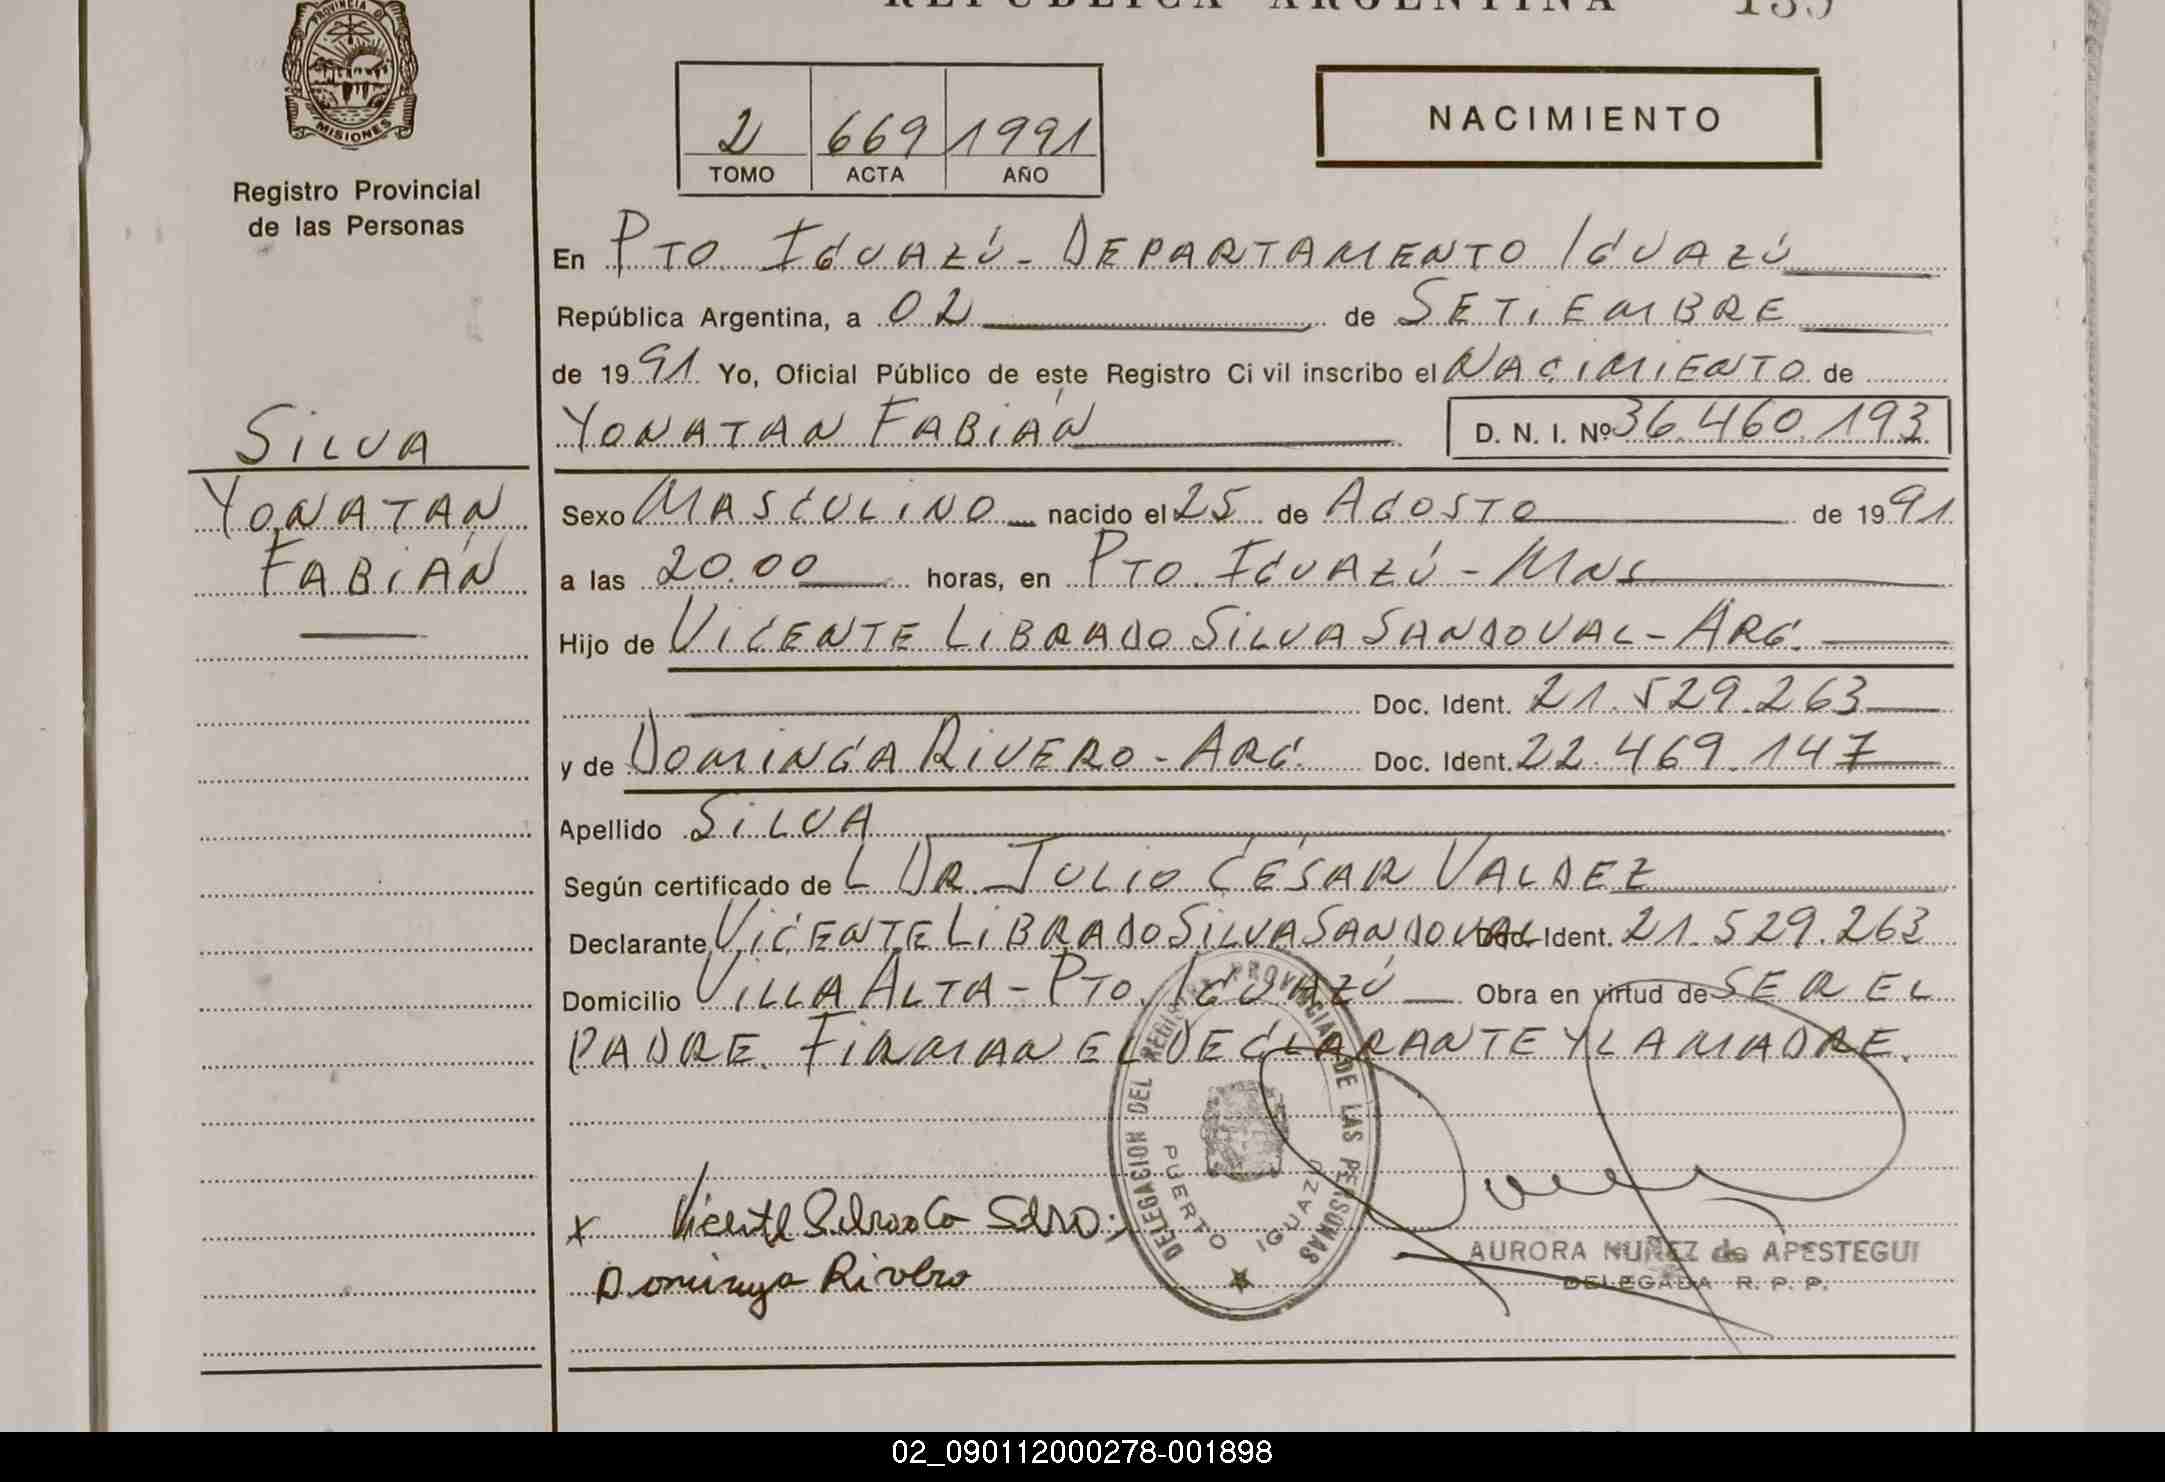 REPUBLICA ARGENTINA 139
PROVINCIA DE
MISIONES
Registro Provincial
de las Personas
2 669 1991
TOMO ACTA AÑO
NACIMIENTO
En PTO. IGUAZÚ - DEPARTAMENTO IGUAZÚ
República Argentina, a 02 de SETIEMBRE
de 1991 Yo, Oficial Público de este Registro Civil inscribo el NACIMIENTO de
YONATAN FABIÁN D. N. I. Nº 36.460.193
SILVA
YONATAN
FABIÁN
Sexo MASCULINO nacido el 25 de AGOSTO de 1991
a las 20.00 horas, en PTO. IGUAZÚ - MNS
Hijo de VICENTE LIBRADO SILVA SANDOVAL - ARG.
Doc. Ident. 21.529.263
y de DOMINGA RIVERO - ARG. Doc. Ident. 22.469.147
Apellido SILVA
Según certificado de L DR. JULIO CÉSAR VALDEZ
Declarante VICENTE LIBRADO SILVA SANDOVAL Doc. Ident. 21.529.263
Domicilio VILLA ALTA - PTO. IGUAZÚ Obra en virtud de SER EL
PADRE. FIRMAN EL DECLARANTE Y LA MADRE.
DELEGACION DEL REGISTRO PROVINCIAL DE LAS PERSONAS
PUERTO IGUAZU
x Vicente
Dominga Rivero
AURORA NUÑEZ de APESTEGUI
DELEGADA R. P. P.
02_090112000278-001898